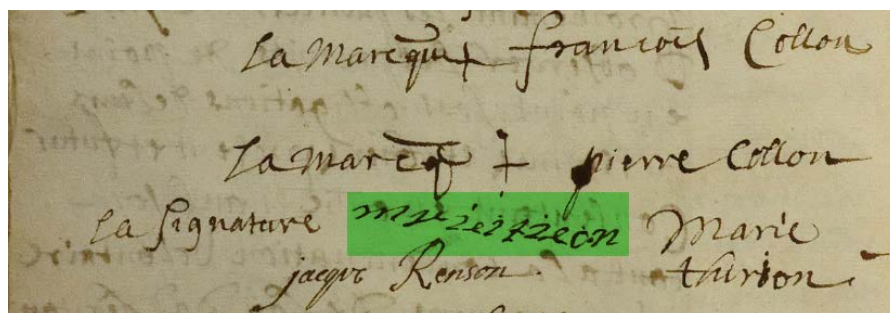 La Marcque + françois Collon
La Marcq + pierre Collon
La signature Marie
jacque Renson thirion